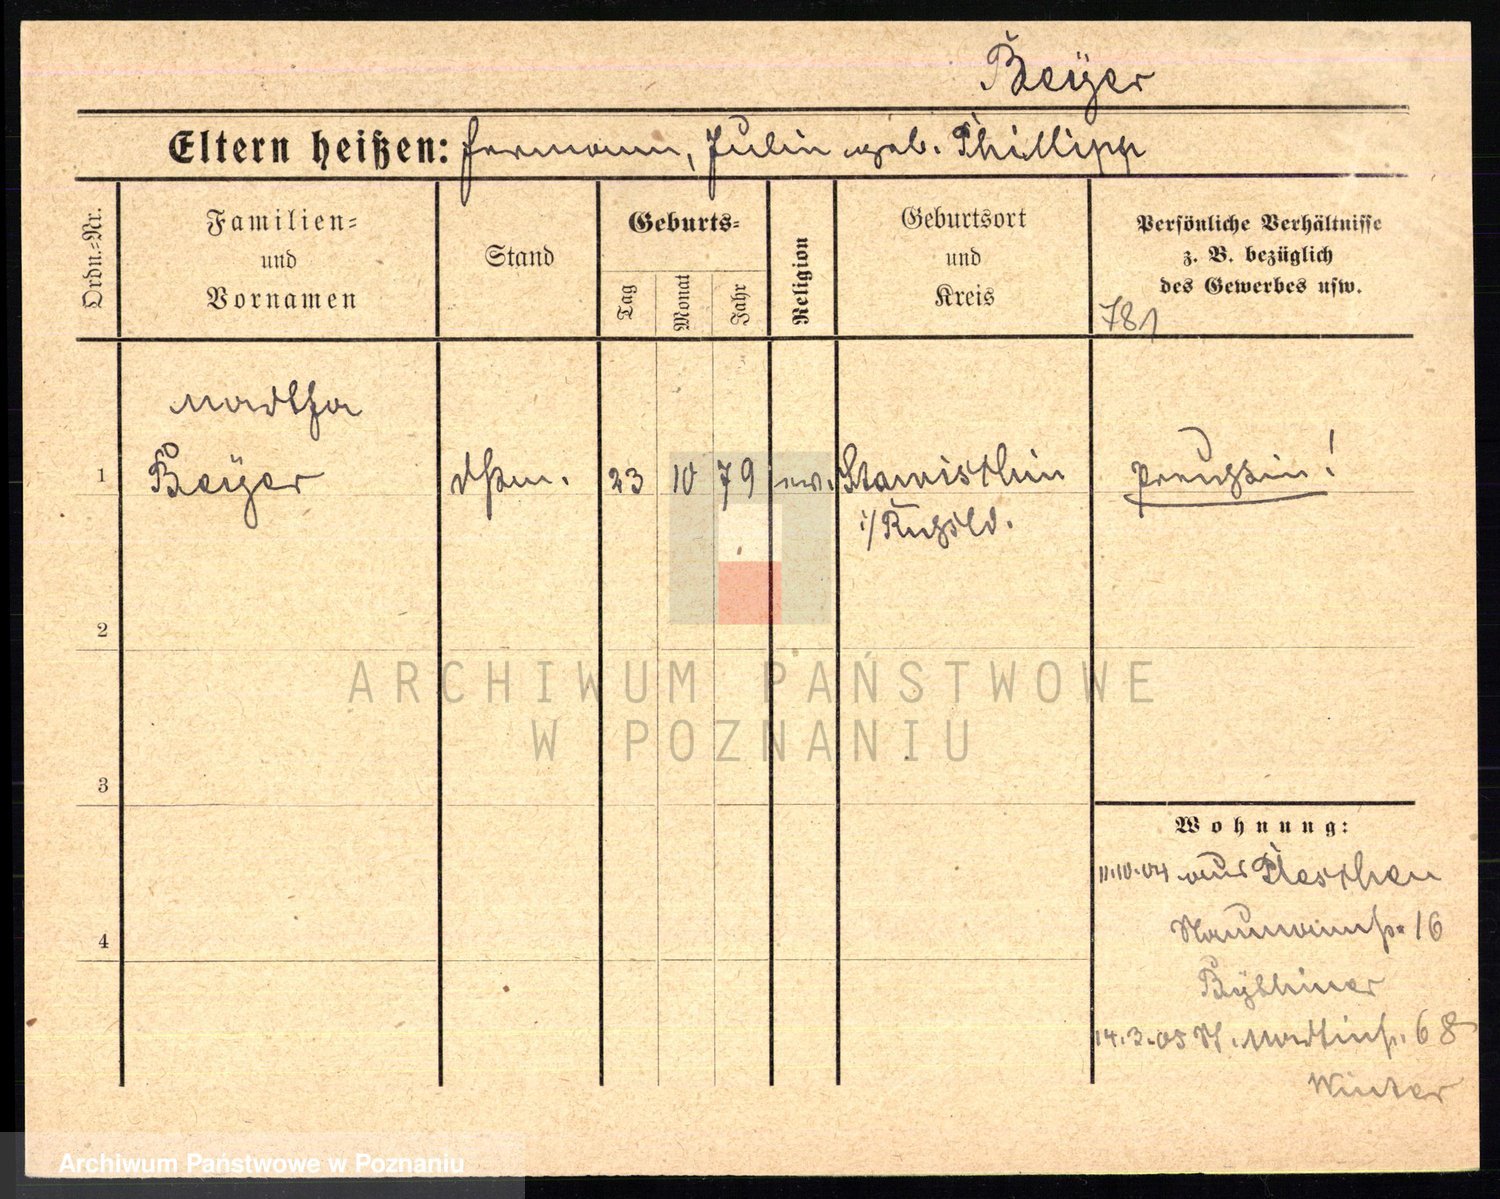 Beyer
Eltern heißen: Hermann, Julia geb. Phillipp
Ordn.=Nr.
Familien=
und
Vornamen
Stand
Geburts=
Tag
Monat
Jahr
Religion
Geburtsort
und
Kreis
Persönliche Verhältnisse
z. B. bezüglich
des Gewerbes usw.
781
Martha
1 Beyer 23 10 79 ev.
i/Rußld.
Preußin!
2
3
4
ARCHIWUM PAŃSTWOWE
W POZNANIU
Wohnung:
11.10.04 aus Pleschen
Naumannstr. 16
14.3.05 St. Martinstr. 68
Winter
Archiwum Państwowe w Poznaniu